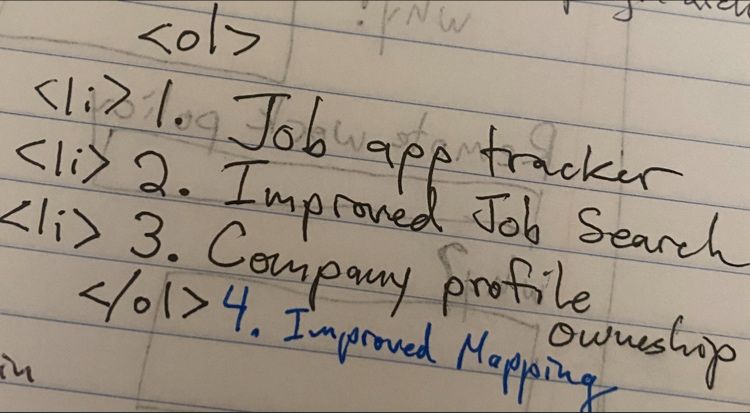 <ol>
<li> 1. Job app tracker
<li> 2. Improved Job Search
<li> 3. Company profile
ownership
</ol> 4. Improved Mapping
in